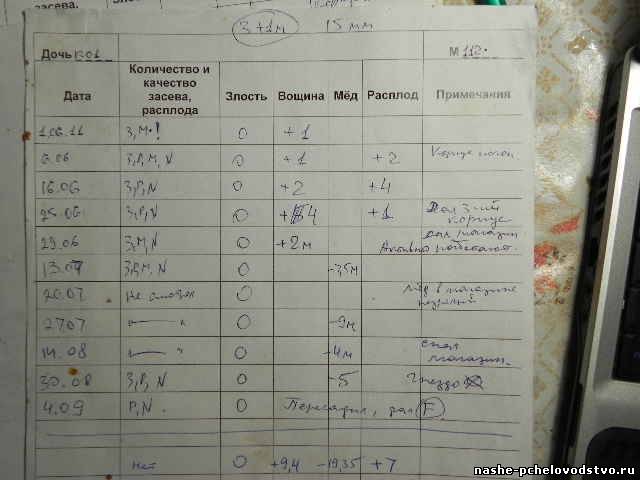 засева.
3+1м 15 мм
Дочь 1301 М 112.
Дата Количество и качество засева, расплода Злость Вощина Мёд Расплод Примечания
1.06.11 З,М.! 0 +1
6.06 З,Р,М,N 0 +1 +2 Корпус
16.06 З,Р,N 0 +2 +4
25.06 З,Р,N 0 + 4 +1 Дал 3ий корпус
29.06 З,М,N 0 +2м Дал магазин Активно
13.07 З,Р,М,N 0 -3,5м
20.07 Не смотрел 0 Мёд в магазине
27.07 —— " 0 -9м
14.08 —— " 0 -4м снял магазин.
30.08 З,Р,N 0 -5 Гнездо
4.09 Р,N. 0 Пересадил, дал F
Нет 0 +9,4 -19,35 +7
nashe-pchelovodstvo.ru